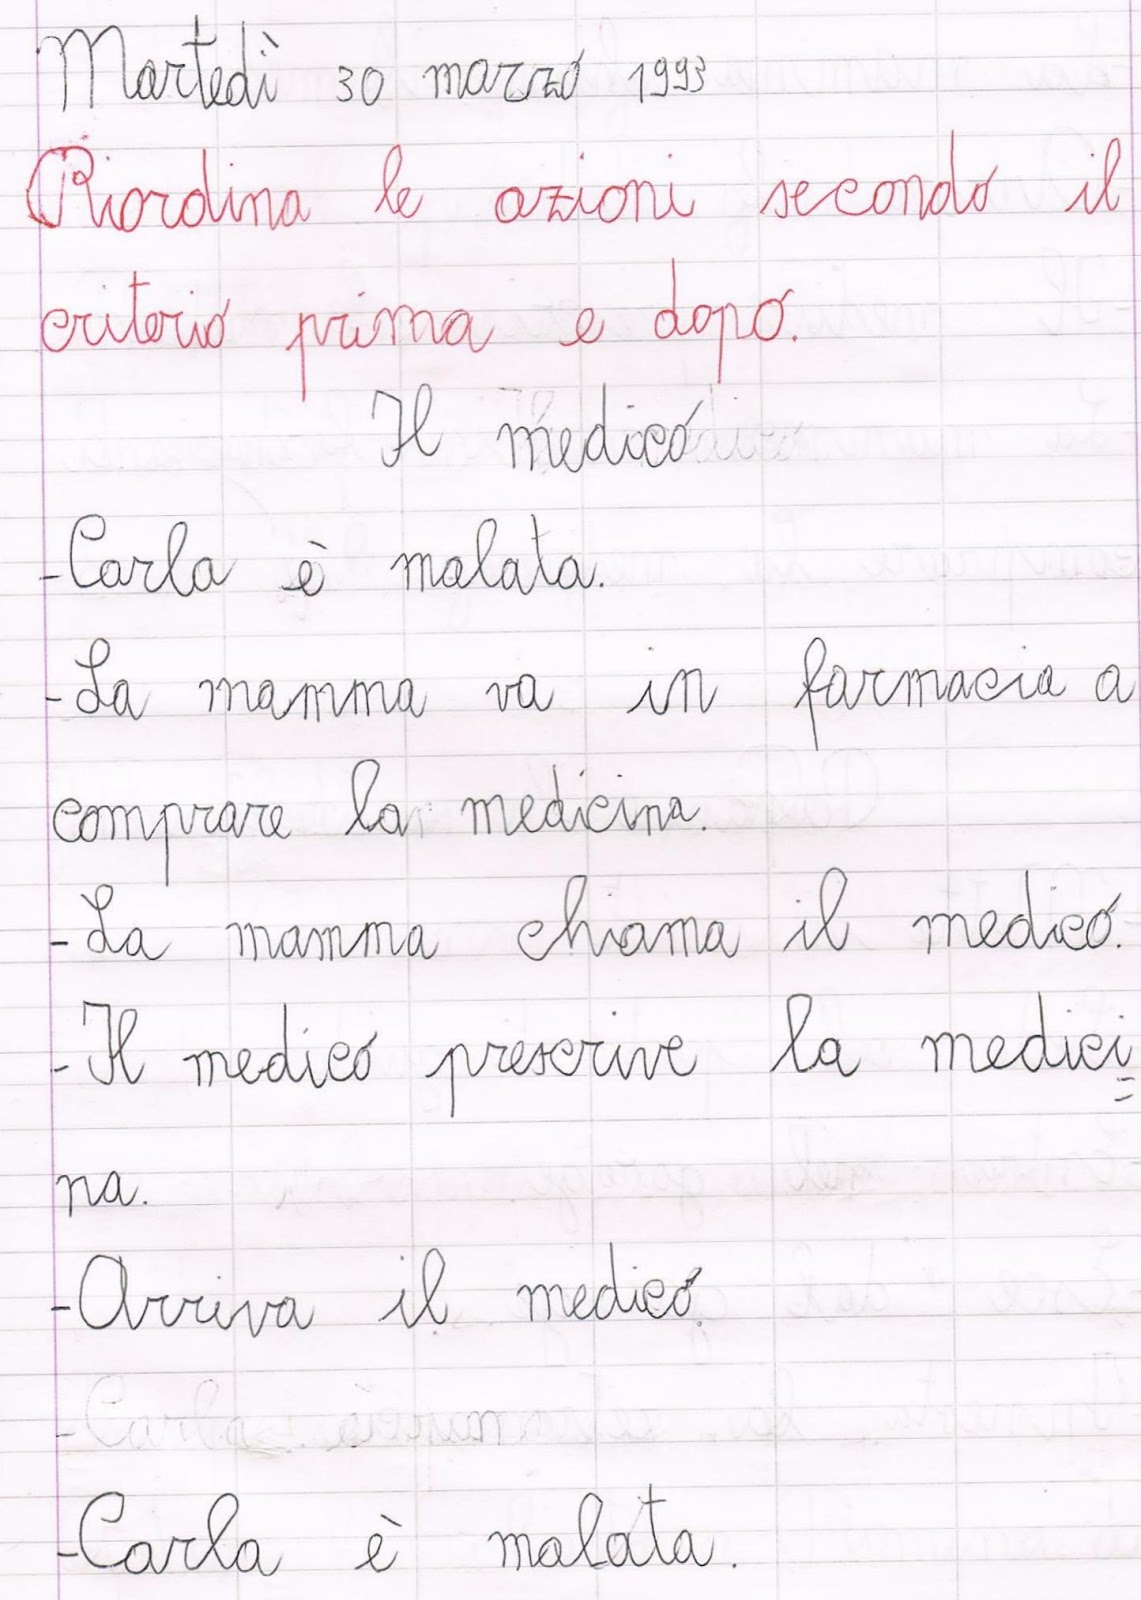 Martedì 30 marzo 1993
Riordina le azioni secondo il
criterio prima e dopo.
Il medico
-Carla è malata.
-La mamma va in farmacia a
comprare la medicina.
-La mamma chiama il medico.
-Il medico prescrive la medici=
na.
-Arriva il medico.
-Carla è malata.